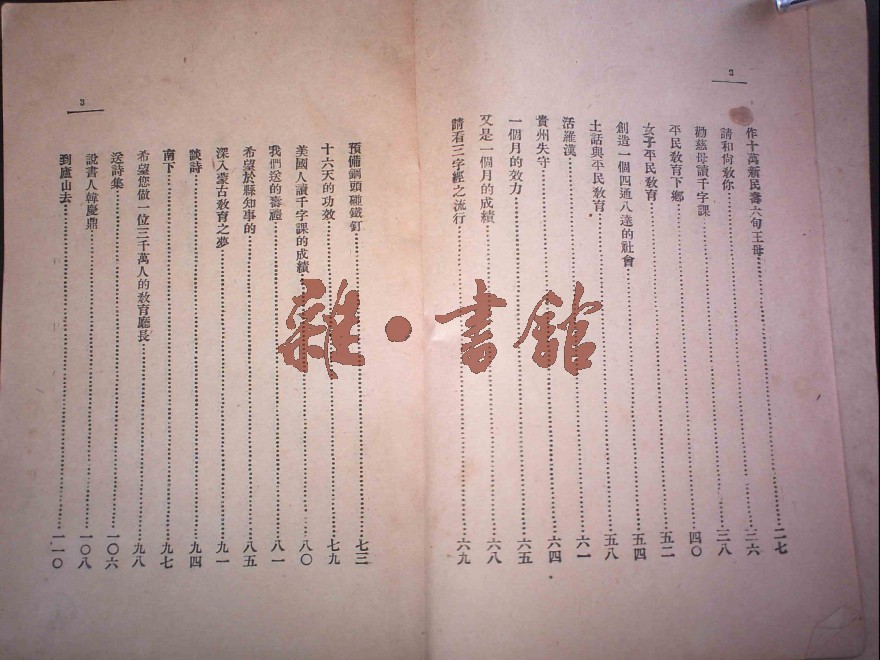 2
作十萬新民壽六旬王母……二七
請和尙敎你……三六
勸慈母讀千字課……三八
平民敎育下鄉……四〇
女子平民敎育……五二
創造一個四通八達的社會……五四
土話與平民敎育……五八
活羅漢……六一
貴州失守……六四
一個月的效力……六五
又是一個月的成績……六八
請看三字經之流行……六九
3
預備鋼頭碰鐵釘……七三
十六天的功效……七九
美國人讀千字課的成績……八〇
我們送的壽禮……八一
希望於縣知事的……八五
深入蒙古敎育之夢……九一
談詩……九四
南下……九七
希望您做一位三千萬人的敎育廳長……九八
送詩集……一〇六
說書人韓慶鼎……一〇八
到廬山去……一一〇
雜·書館